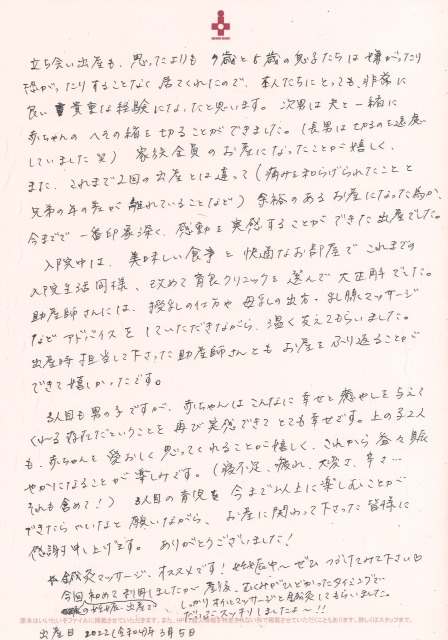 立ち会い出産も、思ったよりも 9歳と5歳の息子たちは嫌がったり
恐がったりすることなく居てくれたので、本人たちにとっても、非常に
良い 貴重な経験になったと思います。次男は夫と一緒に
赤ちゃんの へその緒を切ることができました。(長男は切るのを遠慮
していました 笑) 家族全員の お産になったことが嬉しく、
また、これまで2回の出産とは違って(痛みを和らげられたことと
兄弟の年の差が 離れていることなど) 余裕のある お産になった為か、
今までで 一番印象深く、感動を実感することができた出産でした。
入院中は、美味しい食事と 快適なお部屋で これまでの
入院生活同様、改めて 育良クリニックを 選んで 大正解でした。
助産師さんには、授乳の仕方や 母乳の出方・乳腺マッサージ
など アドバイスを していただきながら、温く支えてもらいました。
出産時 担当して下さった 助産師さんとも お産を ふり返ることが
できて 嬉しかったです。
3人目も男の子ですが、赤ちゃんは こんなに 幸せと癒やしを与えて
くれる存在だということを 再び実感できて とても幸せです。上の子2人
も、赤ちゃんを 愛おしく 思ってくれることが嬉しく、これから 益々 賑
やかになることが 楽しみです。(寝不足、疲れ、大変さ、辛さ…
それも含めて!) 3人目の育児を 今まで以上に楽しむことが
できたら いいなと 願いながら、お産に関わって下さった 皆様に
感謝申し上げます。ありがとうございました!
☆鍼灸マッサージ、オススメです! 妊娠中〜ぜひ つづけてみて下さい♡
今回 初めて 利用しましたが〜 産後、むくみがひどかったタイミングで
の妊娠・出産で しっかりオイルマッサージと鍼灸してもらいました。
だいぶ スッキリしましたよ〜!!
厚木はいいだぞファイルに掲載させていただきます。また、HPや
出産日 2022(令和4)年 3月5日